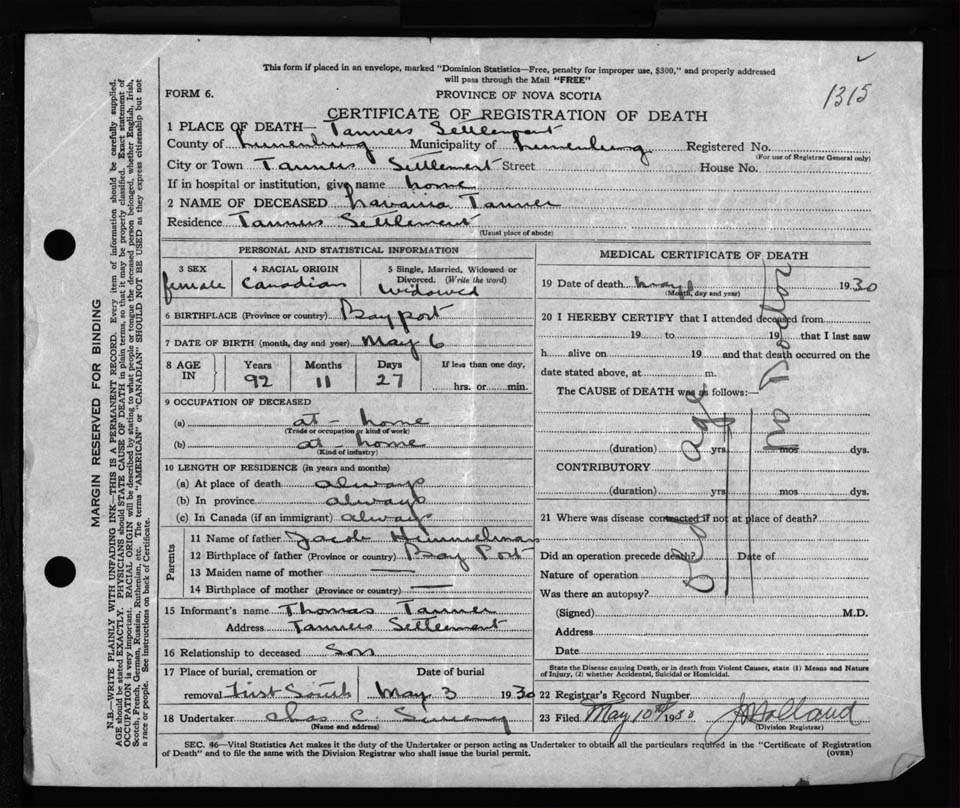 This form if placed in an envelope, marked "Dominion Statistics—Free, penalty for improper use, $300," and properly addressed
will pass through the Mail "FREE"
1315
FORM 6. PROVINCE OF NOVA SCOTIA
CERTIFICATE OF REGISTRATION OF DEATH
1 PLACE OF DEATH— Tanners Settlement
County of Lunenburg Municipality of Lunenburg Registered No.
(For use of Registrar General only)
City or Town Tanners Settlement Street House No.
If in hospital or institution, give name home
2 NAME OF DECEASED Tanner
Residence Tanners Settlement
(Usual place of abode)
PERSONAL AND STATISTICAL INFORMATION
3 SEX 4 RACIAL ORIGIN 5 Single, Married, Widowed or
Divorced. (Write the word)
female Canadian widowed
6 BIRTHPLACE (Province or country) Bayport
7 DATE OF BIRTH (month, day and year) May 6
8 AGE IN Years Months Days If less than one day,
92 11 27 hrs. or min.
9 OCCUPATION OF DECEASED
(a) at home
(Trade or occupation or kind of work)
(b) at home
(Kind of industry)
10 LENGTH OF RESIDENCE (in years and months)
(a) At place of death always
(b) In province always
(c) In Canada (if an immigrant) always
Parents
11 Name of father Jacob Himmelman
12 Birthplace of father (Province or country) Bay Port
13 Maiden name of mother —
14 Birthplace of mother (Province or country) —
15 Informant's name Thomas Tanner
Address Tanners Settlement
16 Relationship to deceased Son
17 Place of burial, cremation or Date of burial
removal First South May 3 1930
18 Undertaker Chas C.
(Name and address)
MEDICAL CERTIFICATE OF DEATH
19 Date of death May 1930
(Month, day and year)
20 I HEREBY CERTIFY that I attended deceased from
19 to 19 that I last saw
h alive on 19 and that death occurred on the
date stated above, at m.
The CAUSE of DEATH was as follows:—
old age
no Doctor
(duration) yrs mos dys.
CONTRIBUTORY
(duration) yrs mos dys.
21 Where was disease contracted if not at place of death?
Did an operation precede death? Date of
Nature of operation
Was there an autopsy?
(Signed) M.D.
Address
Date
State the Disease causing Death, or in death from Violent Causes, state (1) Means and Nature
of Injury, (2) whether Accidental, Suicidal or Homicidal.
22 Registrar's Record Number
23 Filed May 10th 1930 Holland
(Division Registrar)
SEC. 46—Vital Statistics Act makes it the duty of the Undertaker or person acting as Undertaker to obtain all the particulars required in the "Certificate of Registration
of Death" and to file the same with the Division Registrar who shall issue the burial permit. (OVER)
MARGIN RESERVED FOR BINDING
N.B.—WRITE PLAINLY WITH UNFADING INK—THIS IS A PERMANENT RECORD. Every item of information should be carefully supplied.
AGE should be stated EXACTLY. PHYSICIANS should STATE CAUSE OF DEATH in plain terms, so that it may be properly classified. Exact statement of
OCCUPATION is very important. RACIAL ORIGIN will be described by stating to what people or tongue the deceased person belonged, whether English, Irish,
Scotch, French, German, Russian, Ruthenian, etc. The terms "AMERICAN" or "CANADIAN" SHOULD NOT BE USED as they express citizenship but not
a race or people. See instructions on back of Certificate.